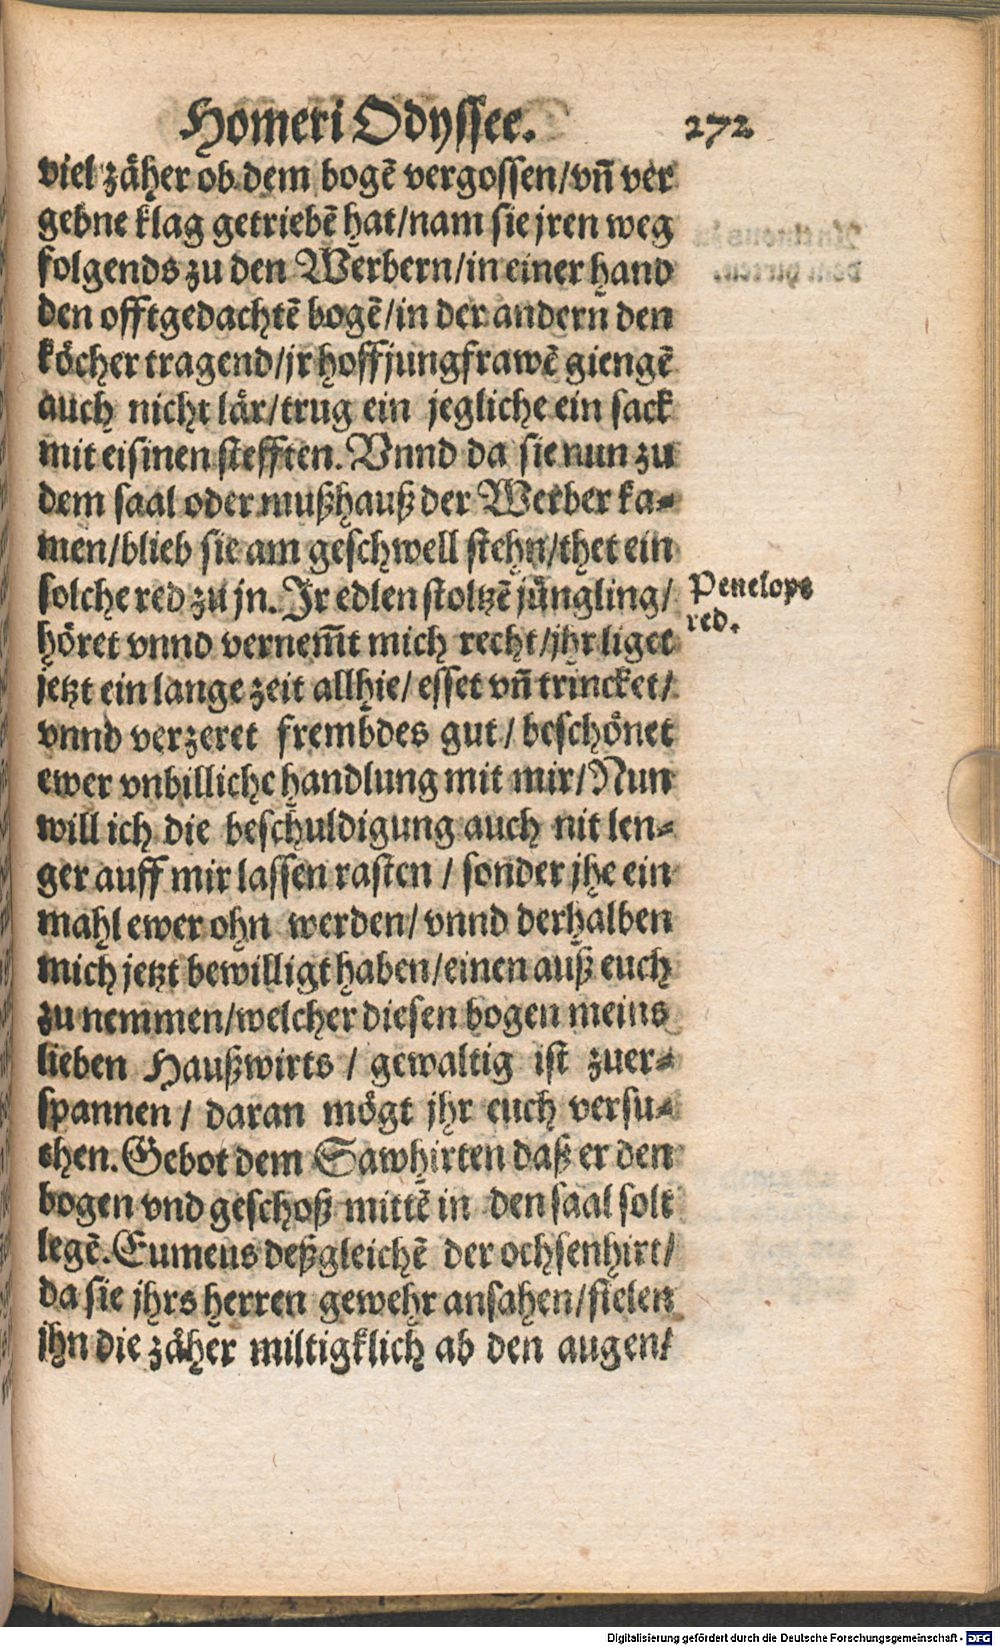 Homeri Odyssee. 272
viel zäher ob dem bogẽ vergossen/vñ ver
gebne klag getriebẽ hat/nam sie jren weg
folgends zu den Werbern/in einer hand
den offtgedachtẽ bogẽ/in der andern den
köcher tragend/jr hoffjungfrawẽ giengẽ
auch nicht lär/trug ein jegliche ein sack
mit eisinen stefften. Vnnd da sie nun zu
dem saal oder mußhauß der Werber ka⸗
men/blieb sie am geschwell stehn/thet ein
solche red zu jn. Jr edlen stoltzẽ jüngling/
höret vnnd vernem̃t mich recht/jhr liget
jetzt ein lange zeit allhie/ esset vñ trincket/
vnnd verzeret frembdes gut/ beschönet
ewer vnbilliche handlung mit mir/Nun
will ich die beschuldigung auch nit len⸗
ger auff mir lassen rasten / sonder jhe ein
mahl ewer ohn werden/ vnnd derhalben
mich jetzt bewilligt haben/einen auß euch
zu nemmen/welcher diesen bogen meins
lieben Haußwirts / gewaltig ist zuer⸗
spannen / daran mögt jhr euch versu⸗
chen. Gebot dem Sawhirten daß er den
bogen vnd geschoß mittẽ in den saal solt
legẽ. Eumeus deßgleichẽ der ochsenhirt/
da sie jhrs herren gewehr ansahen/fielen
jhn die zäher miltigklich ab den augen/
Penelops
red.
Digitalisierung gefördert durch die Deutsche Forschungsgemeinschaft - DFG